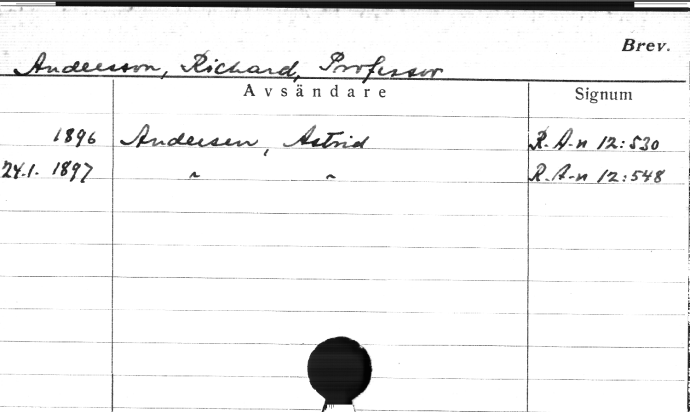 Brev.
Andersson, Richard, Professor
Avsändare Signum
1896 Andersen, Astrid R. A-n 12:530
24.1. 1897 " " R. A-n 12:548